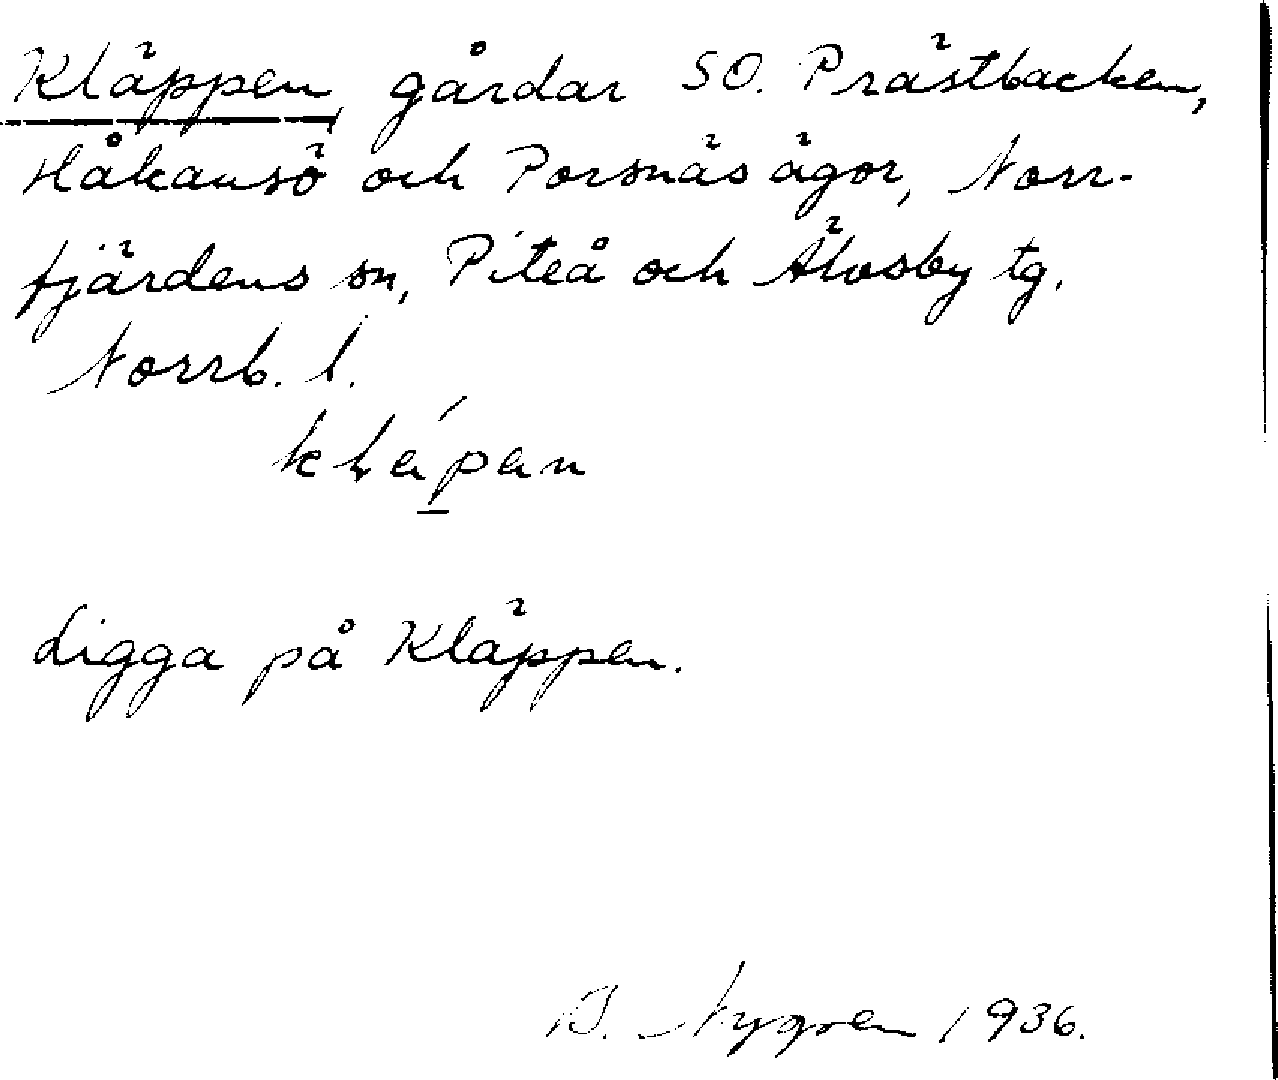 Kläppen, gårdar SO. Prästbacken,
Håkansö och Porsnäs ägor, Norr-
fjärdens sn, Piteå och Älvsby tg.
Norrb. l.
Ligga på Kläppen.
B. Nygren 1936.